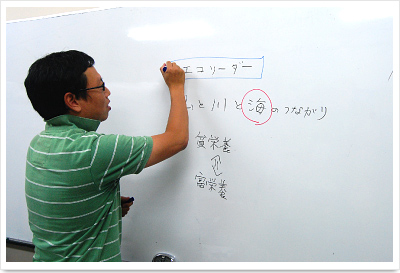 エコリーダー
山と川と海のつながり
貧栄養
富栄養